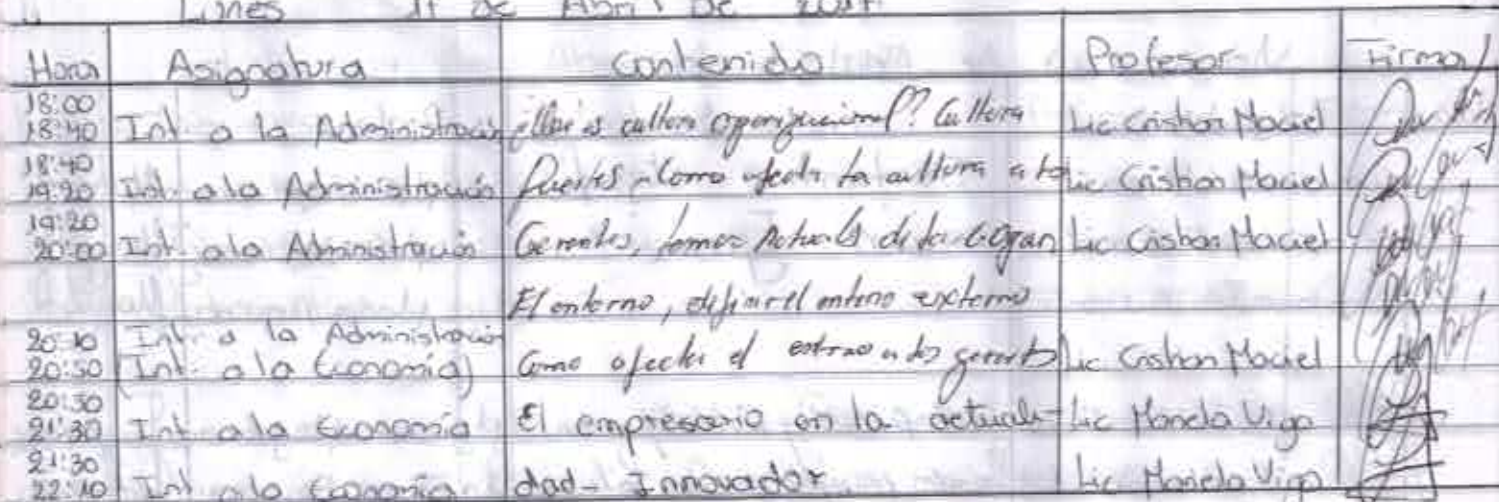 Lunes de Abril de
Hora Asignatura Contenido Profesor Firma
18:00
18:40 Int. a la Administración ¿Que es cultura organizacional? Cultura Lic Cristhan Maciel
18:40
19:20 Int. a la Administración fuertes como afecta la cultura a Lic Cristhan Maciel
19:20
20:00 Int. a la Administración Gerentes, temas Actuals de la Lic Cristhan Maciel
El entorno, definir el entorno externo
20:10 Int. a la Administración
20:50 (Int. a la Economía) Como afecta el entorno a los Lic Cristhan Maciel
20:50
21:30 Int. a la Economía El empresario en la actuali- Lic Mariela Vigo
21:30
22:10 Int. a la Economía dad - Innovador Lic Mariela Vigo